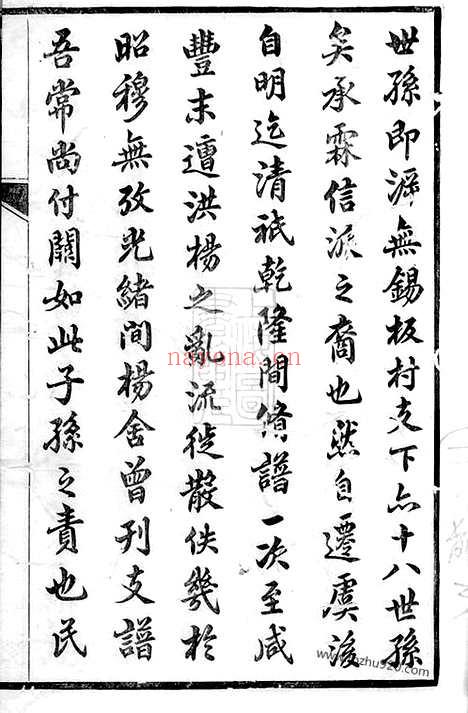 世孫即遷無錫板村支下六十八世孫
矣承霖信派之裔也然自遷虞後
自明迄清祇乾隆間脩譜一次至咸
豐末遭洪楊之亂流徙散佚幾於
昭穆無攷光緒間楊舍曾刊支譜
吾常尚付闕如此子孫之責也民
nayona.cn